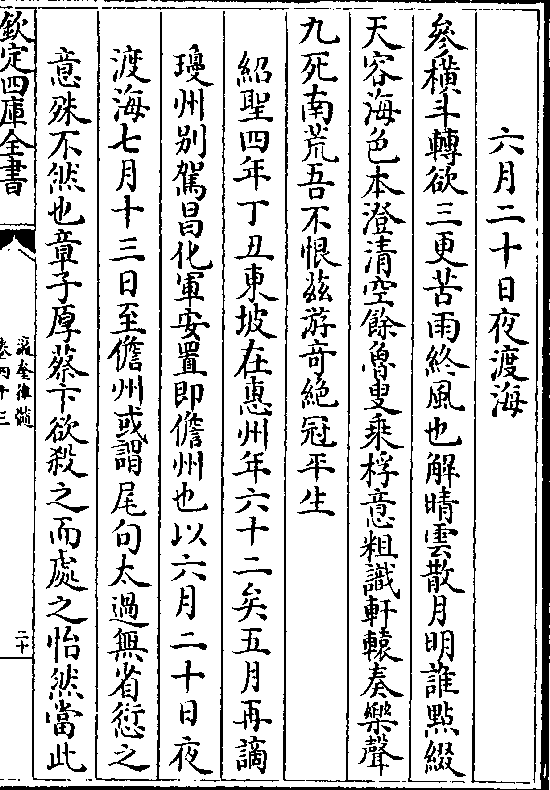 六月二十日夜渡海
參橫斗轉欲三更苦雨終風也解晴雲散月明誰㸃綴
天容海色本澄清空餘魯叟乘桴意粗識軒轅奏樂聲
九死南荒吾不恨兹游竒絶冠平生
紹聖四年丁丑東坡在惠州年六十二矣五月再謫
瓊州别駕昌化軍安置即儋州也以六月二十日夜
渡海七月十三日至儋州或謂尾句太過無省愆之
意殊不然也章子厚蔡卞欲殺之而處之怡然當此
欽定四庫全書
瀛奎律髓
卷四十三
二十